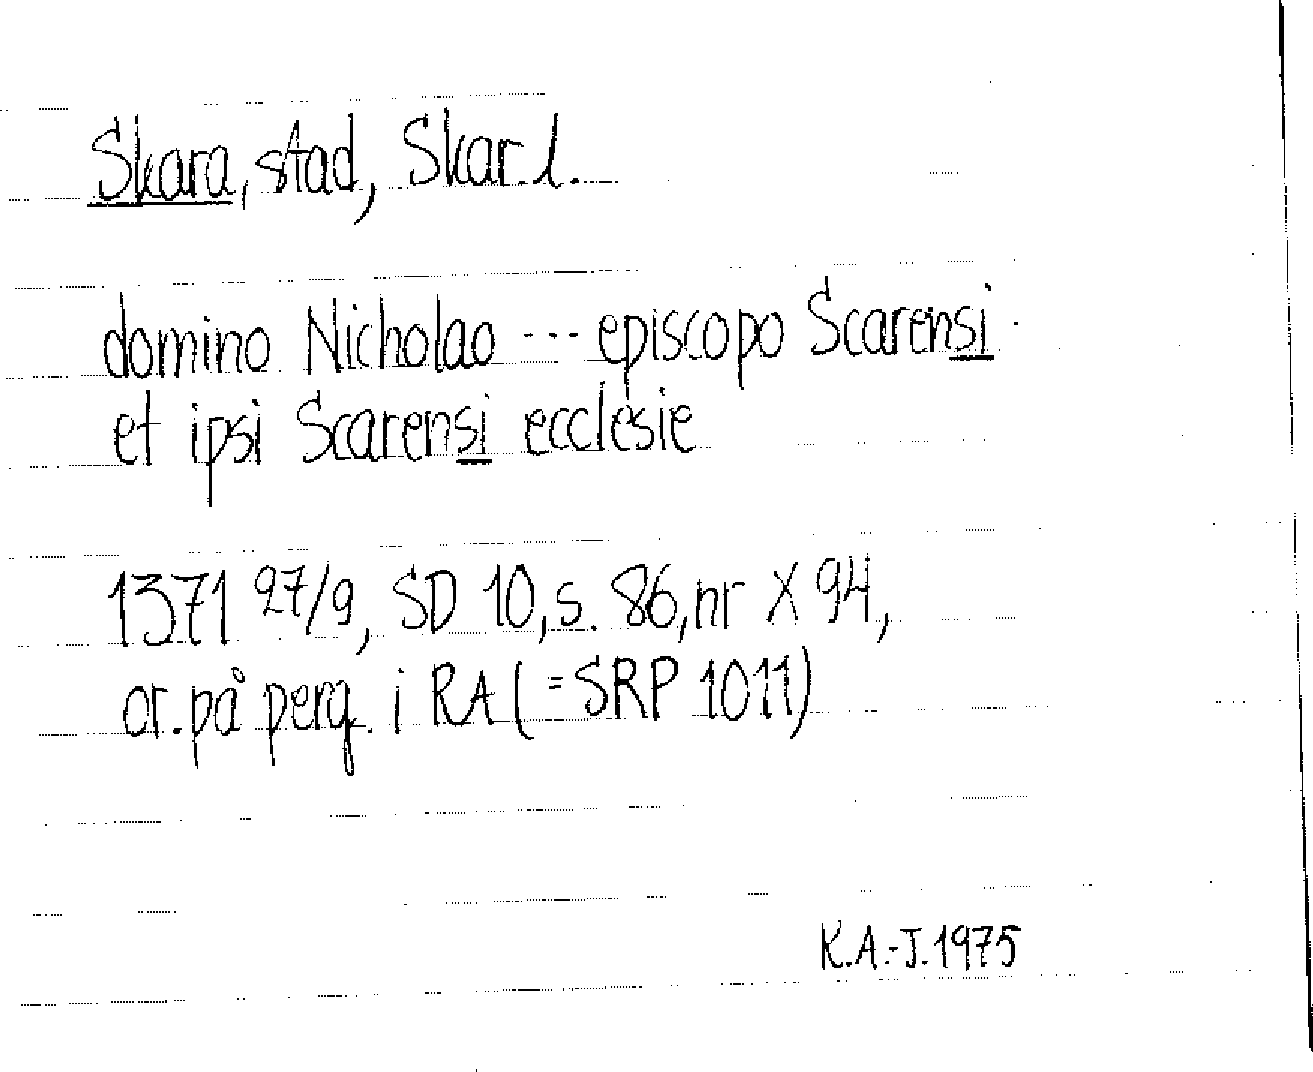 Skara, stad, Skar.l.
domino Nicholao --- episcopo Scarensi
et ipsi Scarensi ecclesie
1371 27/9, SD 10, s. 86, nr X 94,
or. på perg. i RA (=SRP 1011)
K.A.-J. 1975